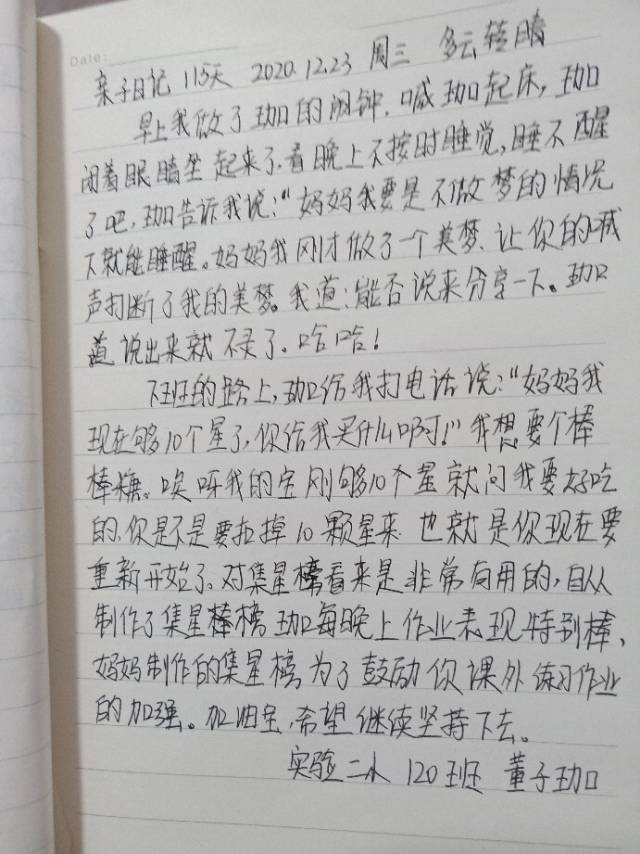 Date:
亲子日记 115天 2020.12.23 周三 多云转晴
早上我做了珈的闹钟.喊珈起床,珈
闭着眼睛坐起来了.看晚上不按时睡觉,睡不醒
了吧,珈告诉我说:“妈妈我要是不做梦的情况
下就能睡醒。妈妈我刚才做了一个美梦、让你的喊
声打断了我的美梦。我道:能否说来分享一下。珈
道说出来就不灵了.哈哈!
下班的路上,珈给我打电话说:“妈妈我
现在够10个星了,你给我买什么啊!”我想要个棒
棒糖。唉呀我的宝刚够10个星就问我要好吃
的.你是不是要拉掉10颗星来 也就是你现在要
重新开始了。对集星榜看来是非常有用的,自从
制作了集星榜 珈每晚上作业表现特别棒,
妈妈制作的集星榜为了鼓励你课外练习作业
的加强。加油宝,希望继续坚持下去。
实验二小 120班 董子珈